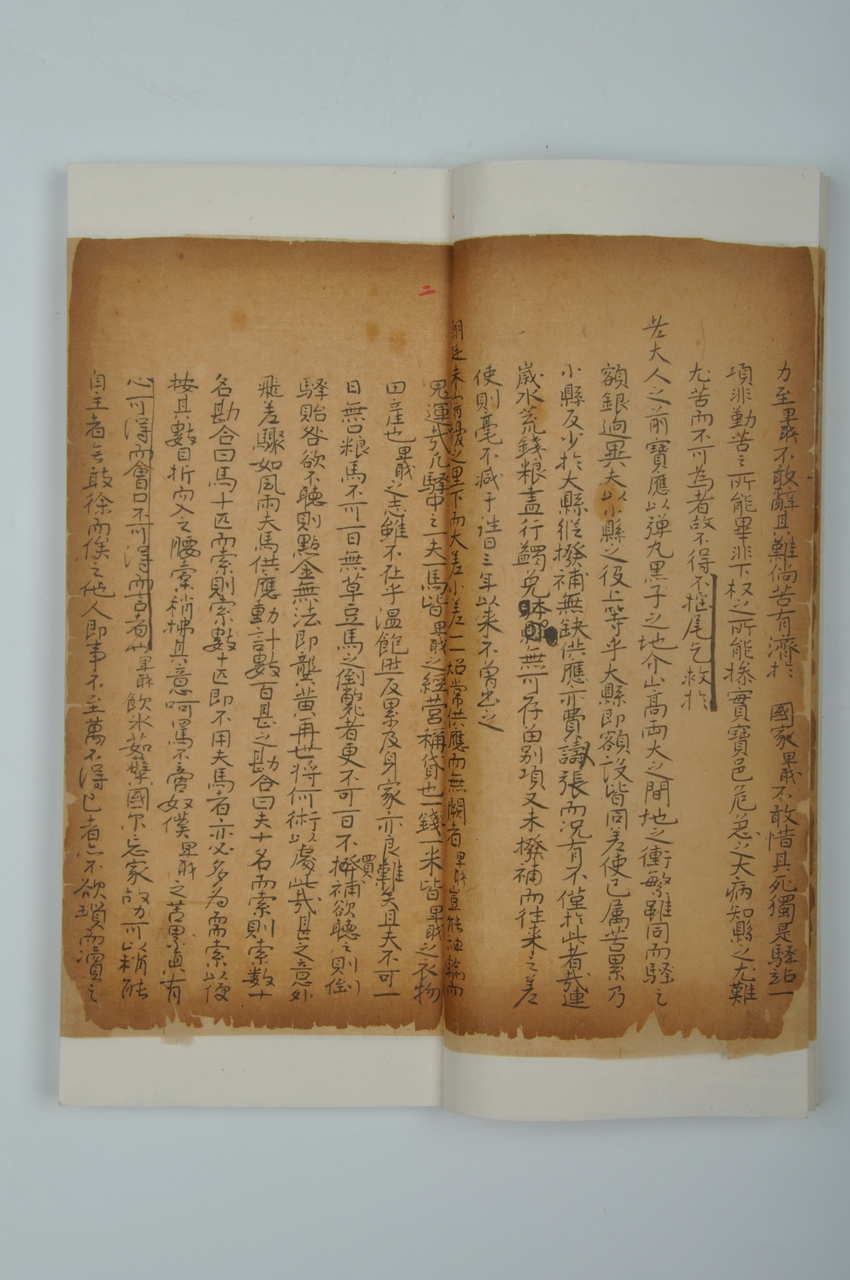 力至翼不敢辭其難倘苦有濟於 國家翼不敢惜其死獨是驛站一
項非勤苦之所能畢非下权之所能掾實寶邑危急之大病知縣之尤難
尤苦而不可為者故不得不摇尾乞救於
大人之前寶應以弹丸黑子之地介山高兩大之間地之衝繁雖同而驛之
額銀逈異夫以小縣之役上等乎大縣即額設皆同差使已属苦累乃
小縣反少於大縣縱撥補無缺供應亦費譸張而況有不僅於此者哉連
歲水荒錢粮盡行蠲免無可存留别項又未撥補而往来之差
使則毫不减于往日三年以来不曾出之
朝廷未山之里下而大差小差一一照常供應而無闕者翼豈能油輸而
鬼運哉凡驛中之一夫一馬皆翼之經营稱貸也一錢一米皆翼之衣物
田産也翼之志雖不在乎温飽世反累及身家亦良難矣且夫不可一
日無口粮馬不可一日無草豆馬之倒斃者更不可一日不買補欲聽之則倒
驛貽咎欲不聽則點金無法即龔黄再世将何術以處此哉甚之意外
飛差驟如風雨夫馬供應動計數百甚之勘合曰夫十名而索則索數十
名勘合曰馬十匹而索則索數十匹即不用夫馬者亦必多為需索以便
按其數目折而入之腰橐稍拂其意呵罵不啻奴僕翼之苦累直有
心可得而會口不可得而言者翼飲氷茹櫱國尔忘家故力可以稍能
自主者無敢徐而俟之他人即事不至萬不得已者不欲瑣而瀆之
二